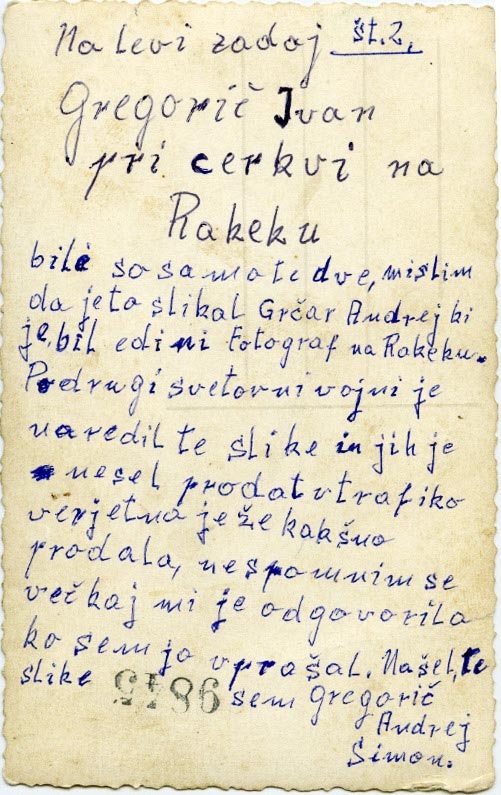 Na levi zadaj št. 2.
Gregorič Ivan
pri cerkvi na
Rakeku
bile so samo te dve, mislim
da je to slikal Grčar Andrej ki
je bil edini Fotograf na Rakeku.
Po drugi svetovni vojni je
naredil te slike in jih je
nesel prodat v trafiko
verjetno je že kakšno
prodala, ne spomnim se
več kaj mi je odgovorila
ko sem jo vprašal. Našel te
slike sem Gregorič
Andrej
Simon.